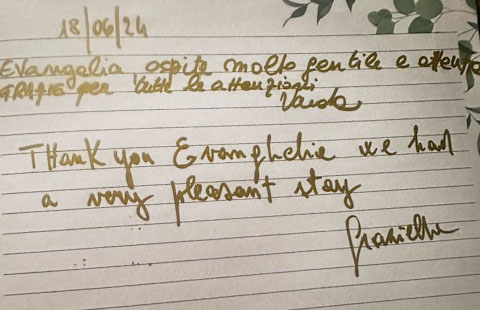 18/06/24
Evangelia, ospite molto gentile e attenta
GRAZIE per tutte le attenzioni
Vanda
Thank you Evanghelie we had
a very pleasant stay